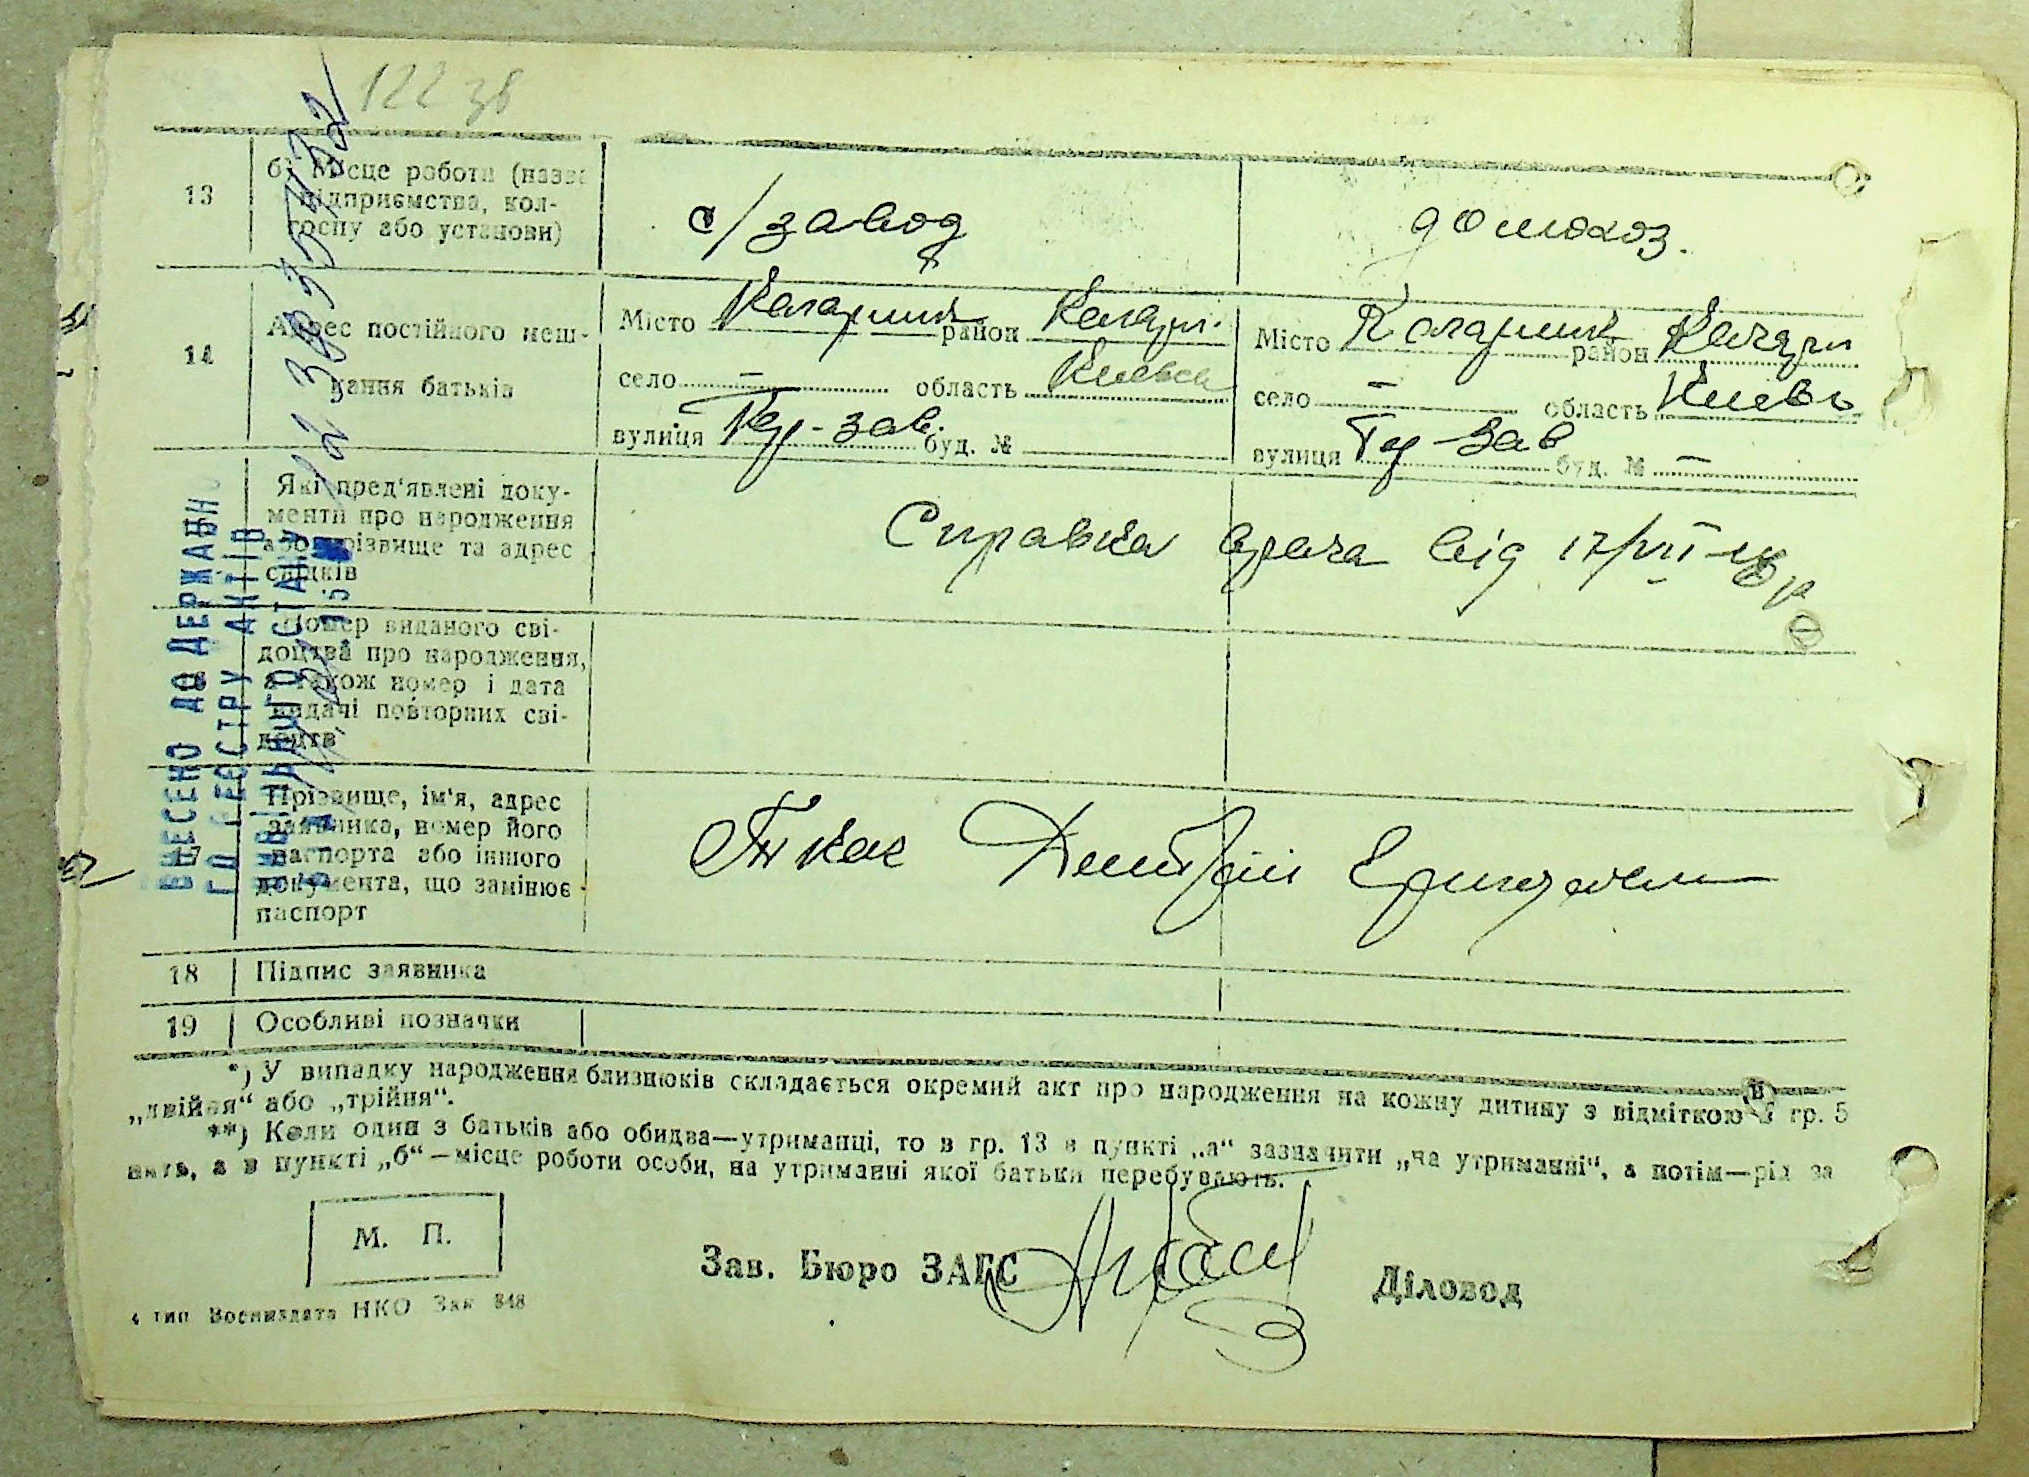 122 зв
13
б) Місце роботи (назва
підприємства, кол-
госпу або установи)
с/завод
домохоз.
14
Адрес постійного меш-
кання батьків
Місто Кагарлик район Кагарл.
село – область Київськ
вулиця буд. №
Місто Кагарлик район Кагарл
село – область Київь
вулиця буд. № –
Які пред'явлені доку-
менти про народження
або прізвище та адрес
свідків
Справка врача від 17/VII
Номер виданого сві-
доцтва про народження,
а також номер і дата
видачі повторних сві-
доцтв
17
Прізвище, ім'я, адрес
заявника, номер його
паспорта або іншого
документа, що замінює
паспорт
Ткач Дмитрій
18 Підпис заявника
19 Особливі позначки
*) У випадку народження близнюків складається окремий акт про народження на кожну дитину з відміткою в гр. 5
„двійня“ або „трійня“.
**) Коли один з батьків або обидва—утриманці, то в гр. 13 в пункті „а“ зазначити „на утриманні“, а потім—рід за
нять, а в пункті „б“—місце роботи особи, на утриманні якої батьки перебувають.
М. П.
Зав. Бюро ЗАГС
Діловод
4 тип Воениздата НКО Зак 848
ВНЕСЕНО ДО ДЕРЖАВНО
ГО РЕЄСТРУ АКТІВ
ЦИВІЛЬНОГО СТАНУ